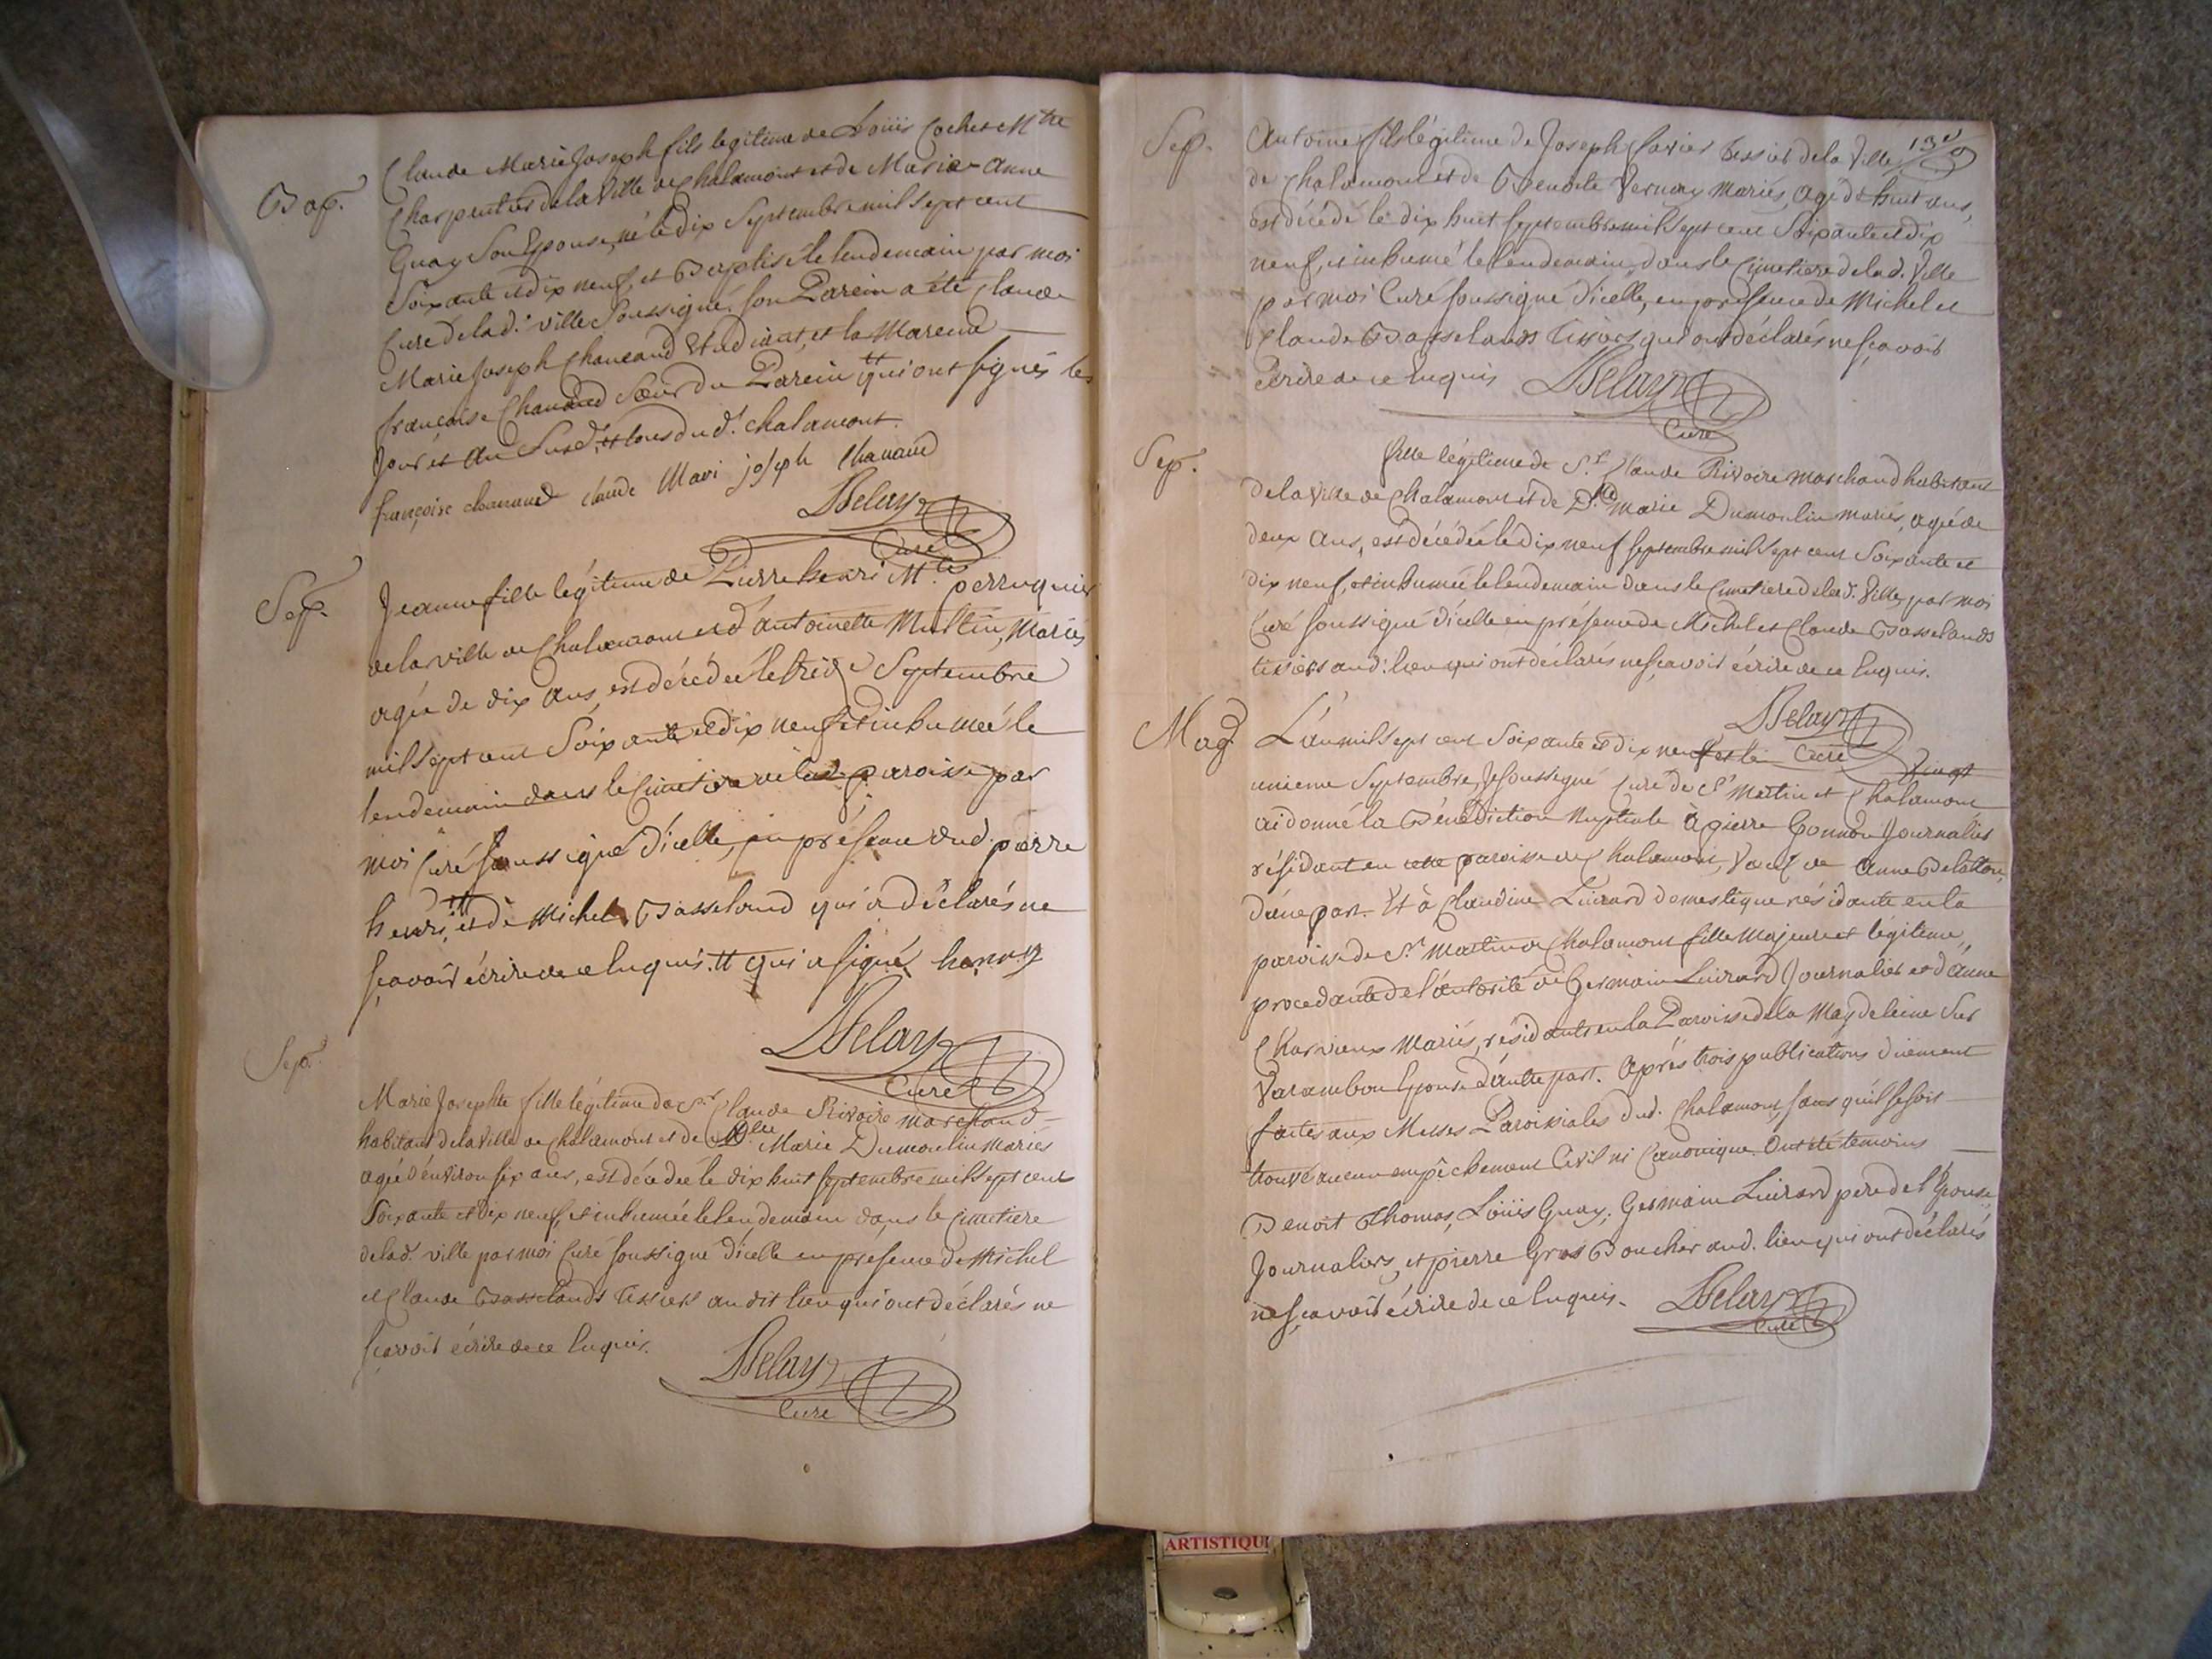 Bap.
Claude Marie Joseph fils legitime de Loüis Cochet M.tre
Charpentier de la Ville de Chalamont et de Marie-Anne
Guay Son Epouse, né le dix Septembre mil Sept cent
Soixante et dix neuf, et Baptisé le lendemain par moi
Curé de lad.e ville Soussigné. Son Parein a été Claude
Marie Joseph Chanaud Etudiant, et la Mareine
françoise Chanaud Sœur du Parein # qui ont signés les
Jour et an Susd.s # tous dud.t chalamont.
françoise chanaud claude Mari joseph Chanaud
Delay
Curé
Sep.
Jeanne fille légitime de Pierre henri M.tre perruquier
de la ville de Chalamont et d'antoinette Multin, Mariés
agée de dix ans, est décédée le treize Septembre
mil Sept cent Soixante et dix neuf et inhumée le
lendemain dans le Cimetiere de lad. paroisse par
moi Curé Soussigné d'icelle, en présence dud. pierre
henri, # et de Michel Basseland qui a déclarés ne
sçavoir écrire de ce Enquis. # qui a signé henry
Delay
Curé
Sep.
Marie Josephte fille légitime de S.r Claude Rivoire marchand
habitant de la Ville de Chalamont et de D.lle Marie Dumoulin Mariés
agée d'environ six ans, est décédée le dix huit septembre mil Sept cent
Soixante et dix neuf, et inhumée le lendemain dans le Cimetiere
de lad. ville par moi Curé soussigné d'icelle en presence de Michel
et Claude Basselands tissiers audit lieu qui ont déclarés ne
sçavoir écrire de ce Enquis.
Delay
Curé
13.e
Sep.
Antoine fils légitime de Joseph Tessier de la Ville
de Chalamont et de Benoite Vernay Mariés, agé de huit ans,
est décédé le dix huit septembre mil Sept cent Soixante et dix
neuf, et inhumé le lendemain dans le Cimetiere de lad. Ville
par moi Curé soussigné d'icelle, en présence de Michel et
Claude Basselands tissiers qui ont déclarés ne sçavoir
Ecrire de ce Enquis
Delay
Curé
Sep.
fille légitime de S.r Claude Rivoire marchand habitant
de la Ville de Chalamont et de D.lle Marie Dumoulin mariés, agée de
deux ans, est décédée le dix neuf septembre mil Sept cent Soixante et
dix neuf, et inhumée le lendemain dans le Cimetiere de lad. Ville, par moi
Curé soussigné d'icelle en présence de Michel et Claude Basselands
tissiers aud. lieu qui ont déclarés ne sçavoir écrire de ce Enquis.
Delay
Curé
Mag.
L'an mil Sept cent Soixante et dix neuf et le vingt
unieme Septembre, Je soussigné Curé de S.t Martin et Chalamont
ai donné la Bénédiction Nuptiale à pierre Journalier
résidant en cette paroisse de Chalamont, Veuf de Anne
d'une part. Et à Claudine Luirard domestique résidante en la
paroisse de S.t Martin de Chalamont fille Majeure et légitime,
procedante de l'autorité de Germain Luirard Journalier et d'anne
Charvieux Mariés, résidants en la Paroisse de la Magdeleine Sur
Varambon Epouse d'autre part. Après trois publications düement
faites aux Messes Paroissiales dud. Chalamont, sans qu'il se soit
trouvé aucun empêchement Civil ni Canonique. Ont été temoins
Benoit Thomas, Loüis Guay, Germain Luirard pere de l'Epouse,
Journaliers, et pierre Gros Boucher aud. lieu qui ont déclarés
ne sçavoir écrire de ce Enquis.
Delay
Curé
ARTISTIQU